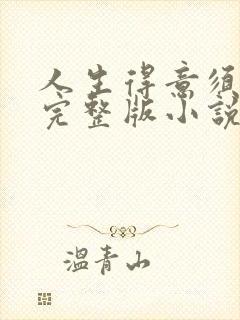 人生得意须
完整版小說
溫青山